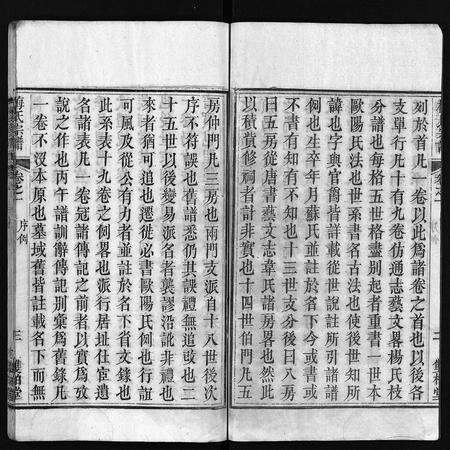 列於首凡一卷以此爲譜卷之首也以後各
支單行凡十有九卷仿通志藝文畧楊氏枝
分譜也每格五世格盡別起者重書一世本
歐陽氏法也世系書名古法也使後世知所
諱也字與官爵皆詳載從世說註所引諸譜
例也生卒年月蘇氏並註於名下今或書或
不書有知有不知也十三世支分爲六房
曰祠者唐書藝文志韋氏諸房畧也然此
以積貲修祠者計非實也十四世伯門凡五
房仲門凡三房也兩門支派自十八世後次
序不得誤也舊譜悉仍其誤禮無追改也二
十五世以後變易派名者襲謬沿訛非禮也
來者猶可追也遷徙必書歐陽氏例也行誼
可風及從公有力者並註於名下省文錄也
此系表十九卷之例畧也派行居址仕宦遺
名諸表凡一卷冠諸傳記之前者以實爲攷
說之作也丙午譜訓傳記別彙爲舊錄凡
一卷不沒本原也墓域舊皆註載名下而無
氏宗譜 卷之一 序例 三